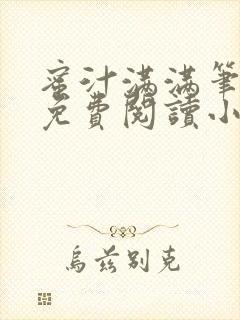 蜜汁满满筆
免費閱讀小
烏茲別克